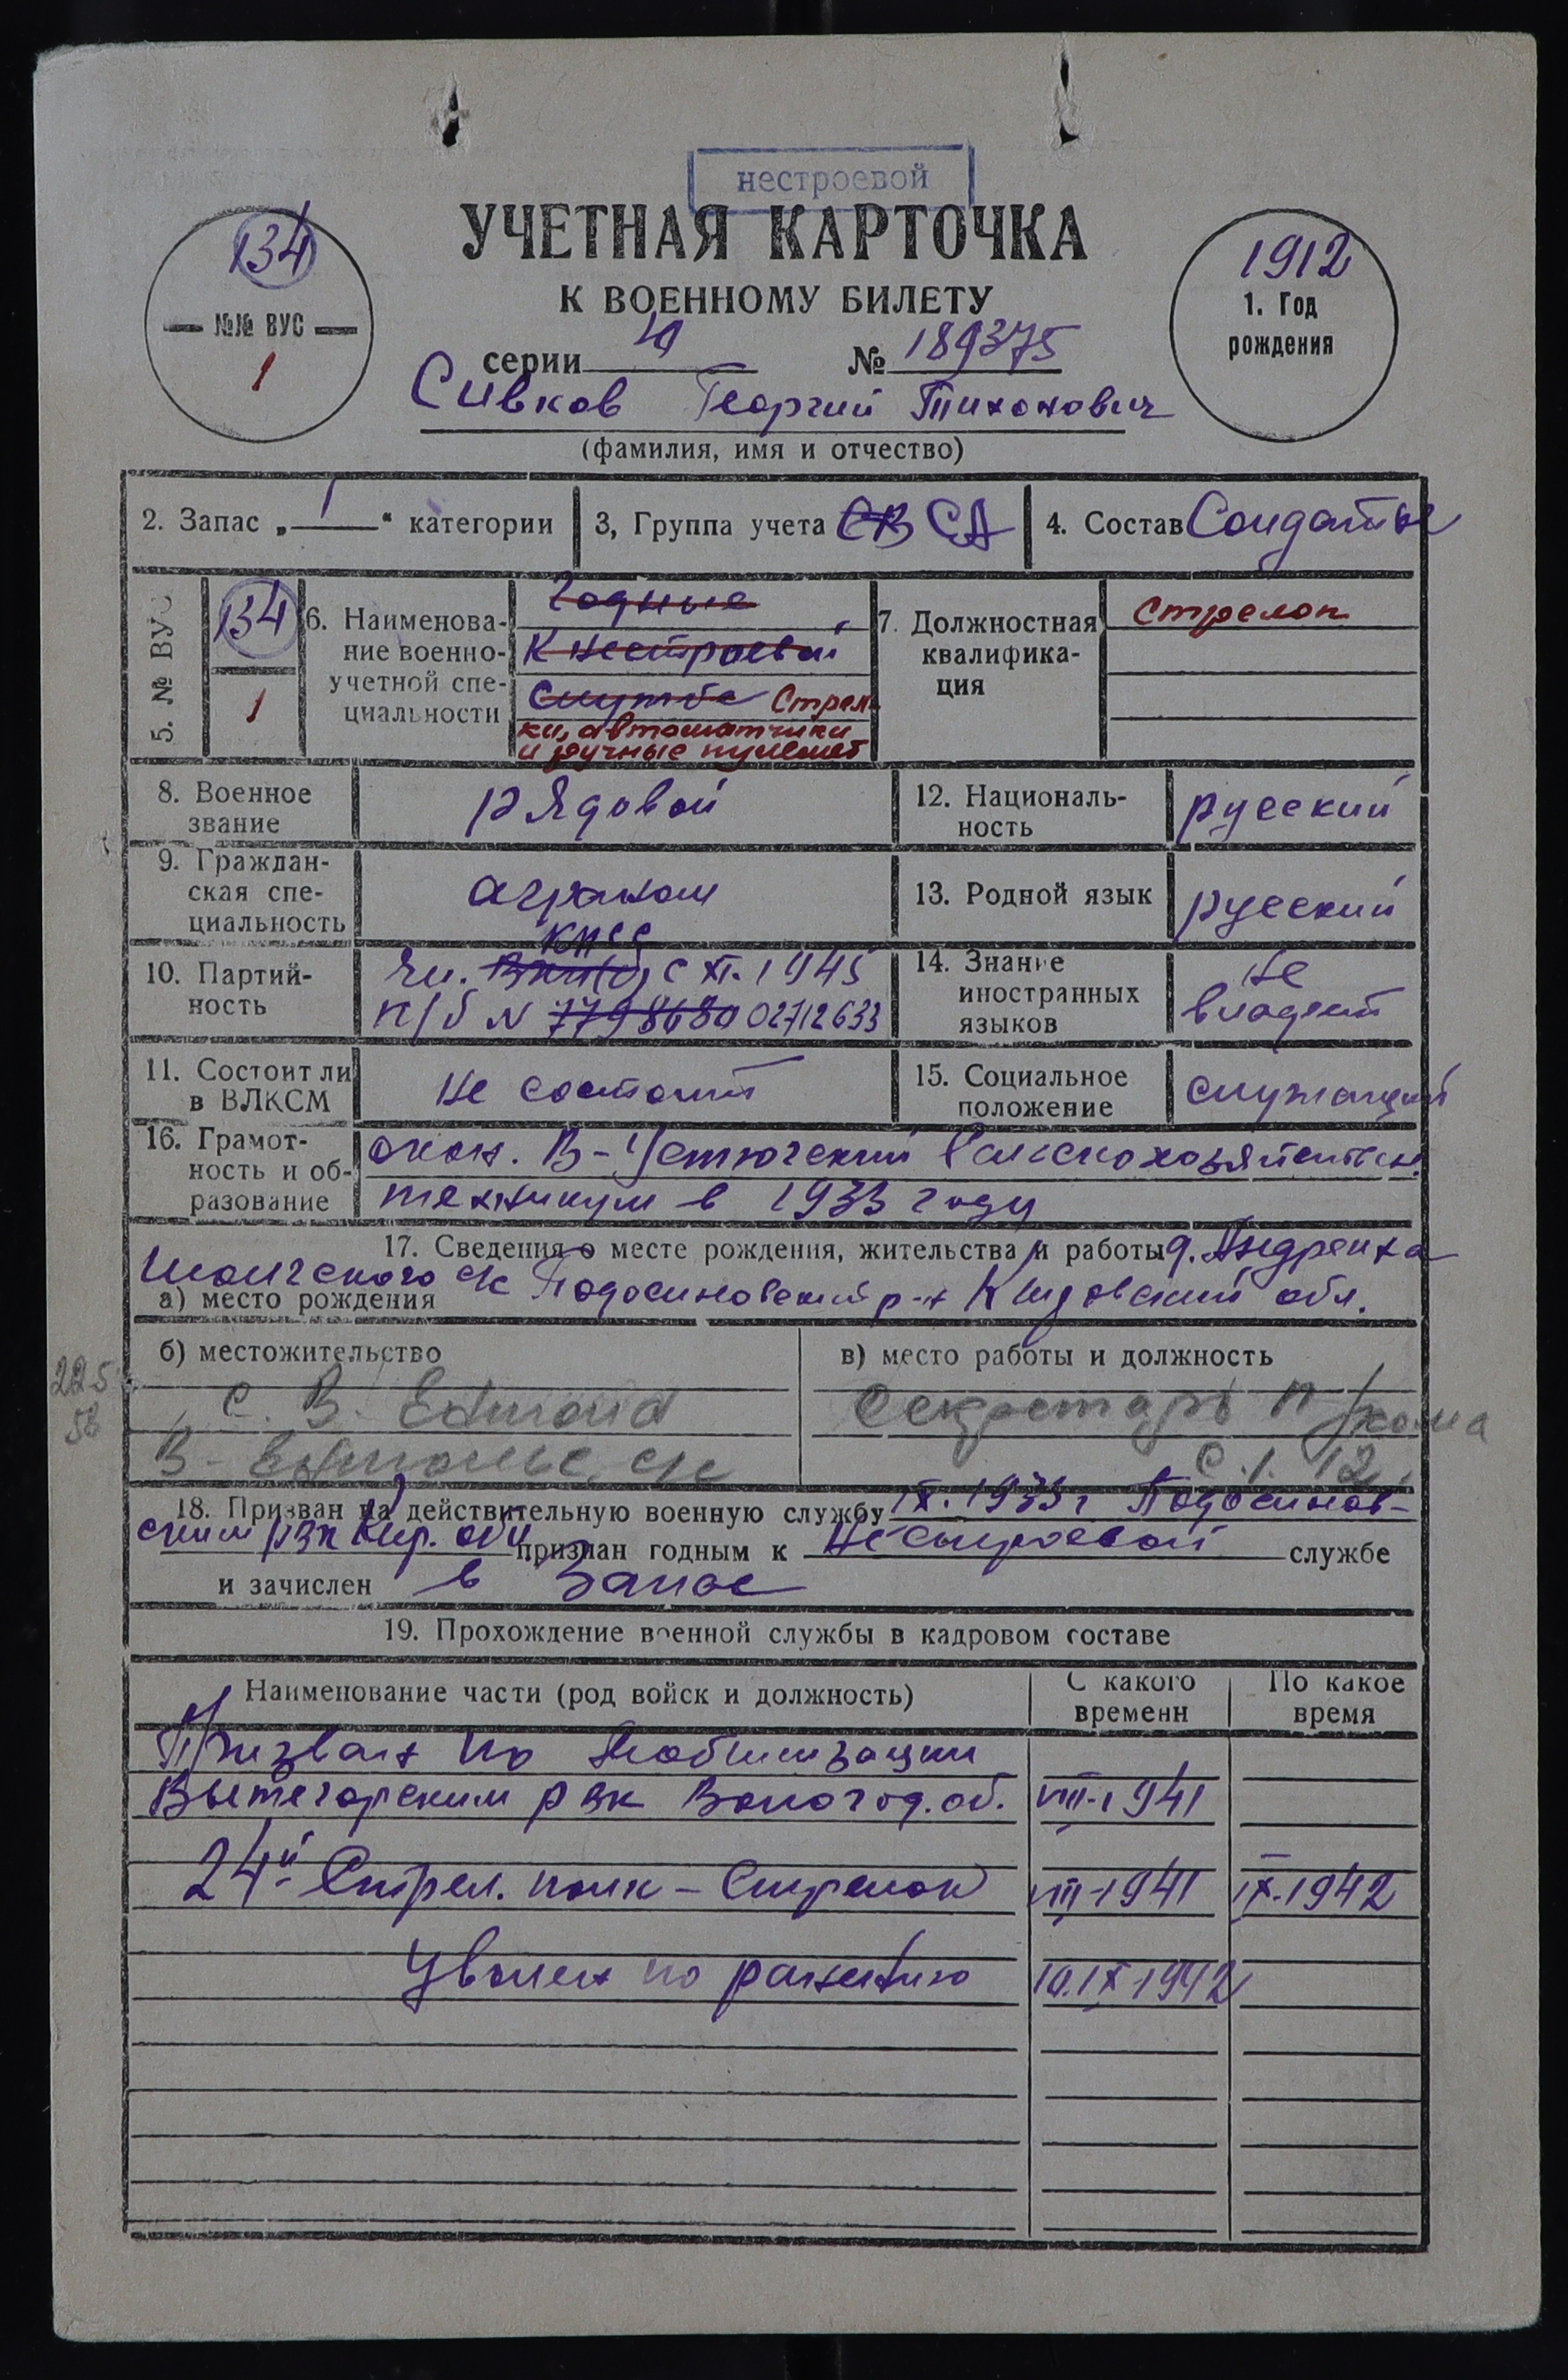 нестроевой
УЧЕТНАЯ КАРТОЧКА
К ВОЕННОМУ БИЛЕТУ
134
№№ ВУС
1
1912
1. Год
рождения
серии № 189375
Сивков Георгий Тихонович
(фамилия, имя и отчество)
2. Запас „ 1 “ категории
3, Группа учета СВ СА
4. Состав Солдаты
5. № ВУС
134
1
6. Наименова-
ние военно-
учетной спе-
циальности
Годные
к нестроевой
службе Стрел
ки, автоматчики
и ручные пулемет
7. Должностная
квалифика-
ция
Стрелок
8. Военное
звание
рядовой
12. Националь-
ность
русский
9. Граждан-
ская спе-
циальность
агроном
13. Родной язык
русский
10. Партий-
ность
КПСС
чл. ВКП(б) с XI. 1945
п/б N 7798680 02712633
14. Знание
иностранных
языков
не
владеет
11. Состоит ли
в ВЛКСМ
не состоит
15. Социальное
положение
служащий
16. Грамот-
ность и об-
разование
окон. В-Устюгский Сельскохозяйствен.
техникум в 1933 году
17. Сведения о месте рождения, жительства и работы
д.
с/с Подосиновский р-н Кировский обл.
а) место рождения
б) местожительство
225
с. В.
с/с
в) место работы и должность
Секретарь п/
18. Призван на действительную военную службу IX. 1933 г Подосинов-
ским рвк Кир. обл признан годным к нестроевой службе
и зачислен в Запас
19. Прохождение военной службы в кадровом составе
Наименование части (род войск и должность)
С какого
времени
По какое
время
Призван по мобилизации
Вытегорским рвк Вологод. об. VIII-1941
24й Стрел. полк – Стрелок VIII-1941 IX-1942
Уволен по ранению 10.IX-1942